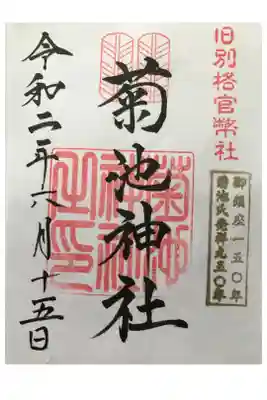 旧別格官幣社
御鎮座一五〇年
菊池氏発祥九五〇年
菊池神社
菊池神社之印
令和二年六月十五日